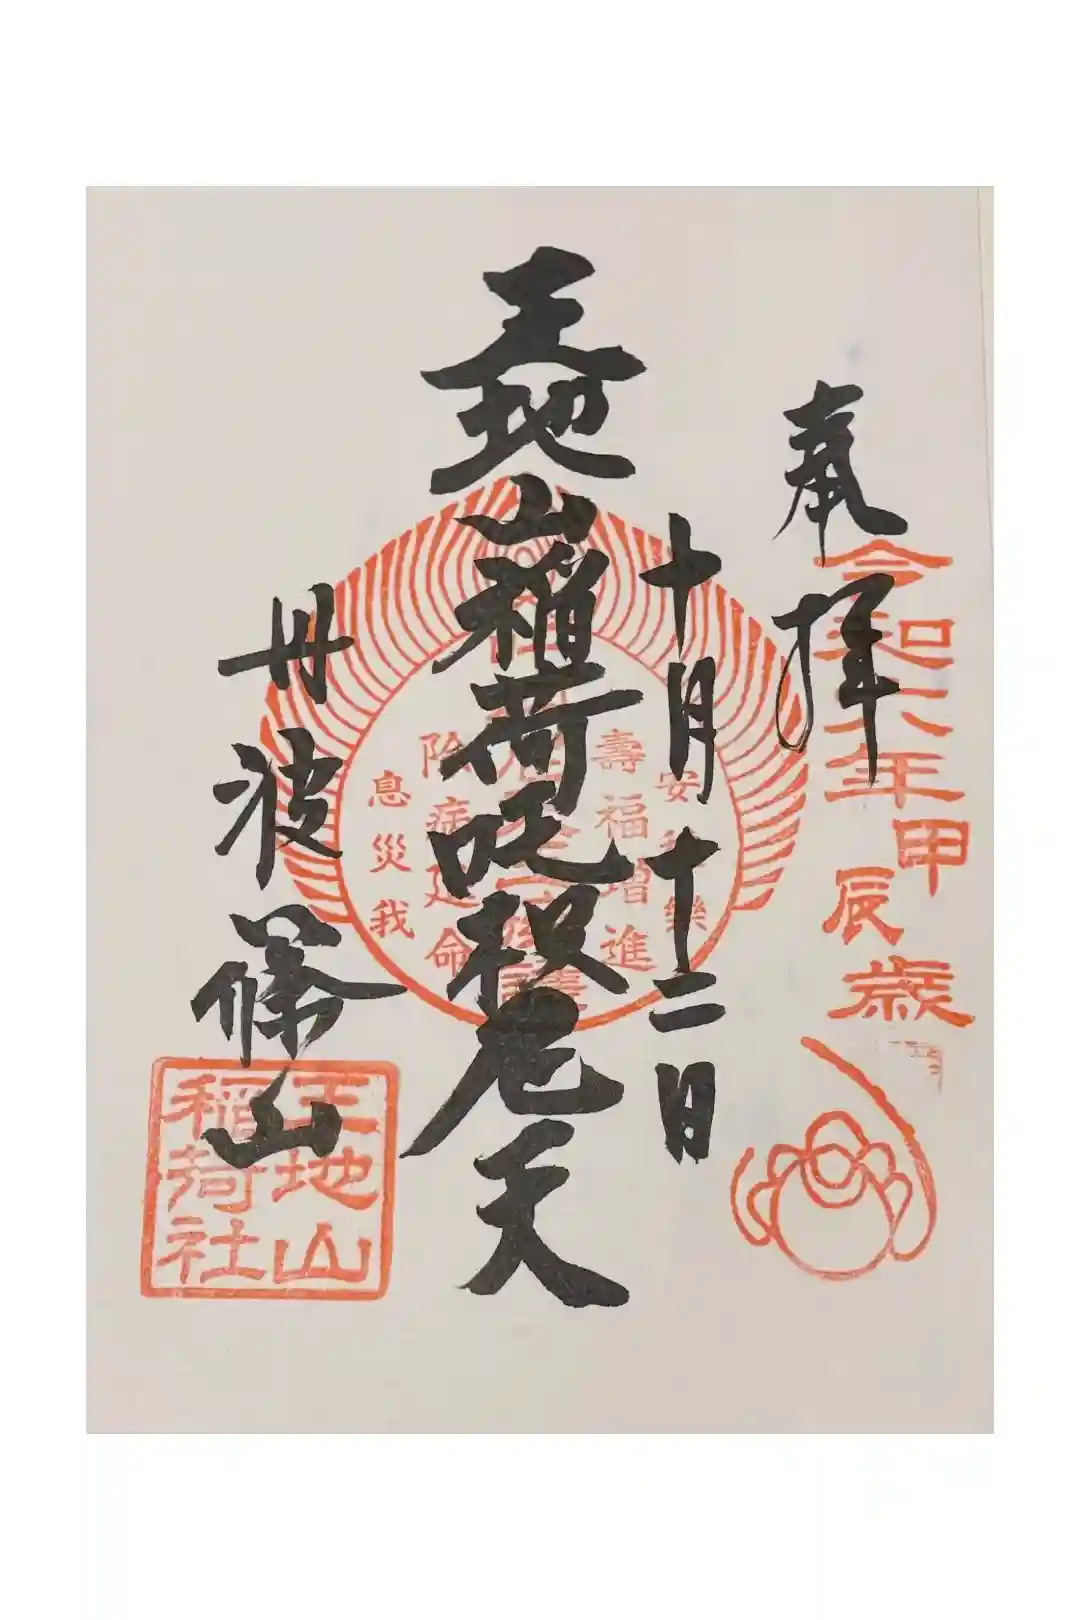 奉拝
令和六年
甲
辰
歳
十月十二日
安
樂
壽福増進
王地山稲荷吒枳尼天
除病延命
息災我
丹波篠山
王地山
稲荷社